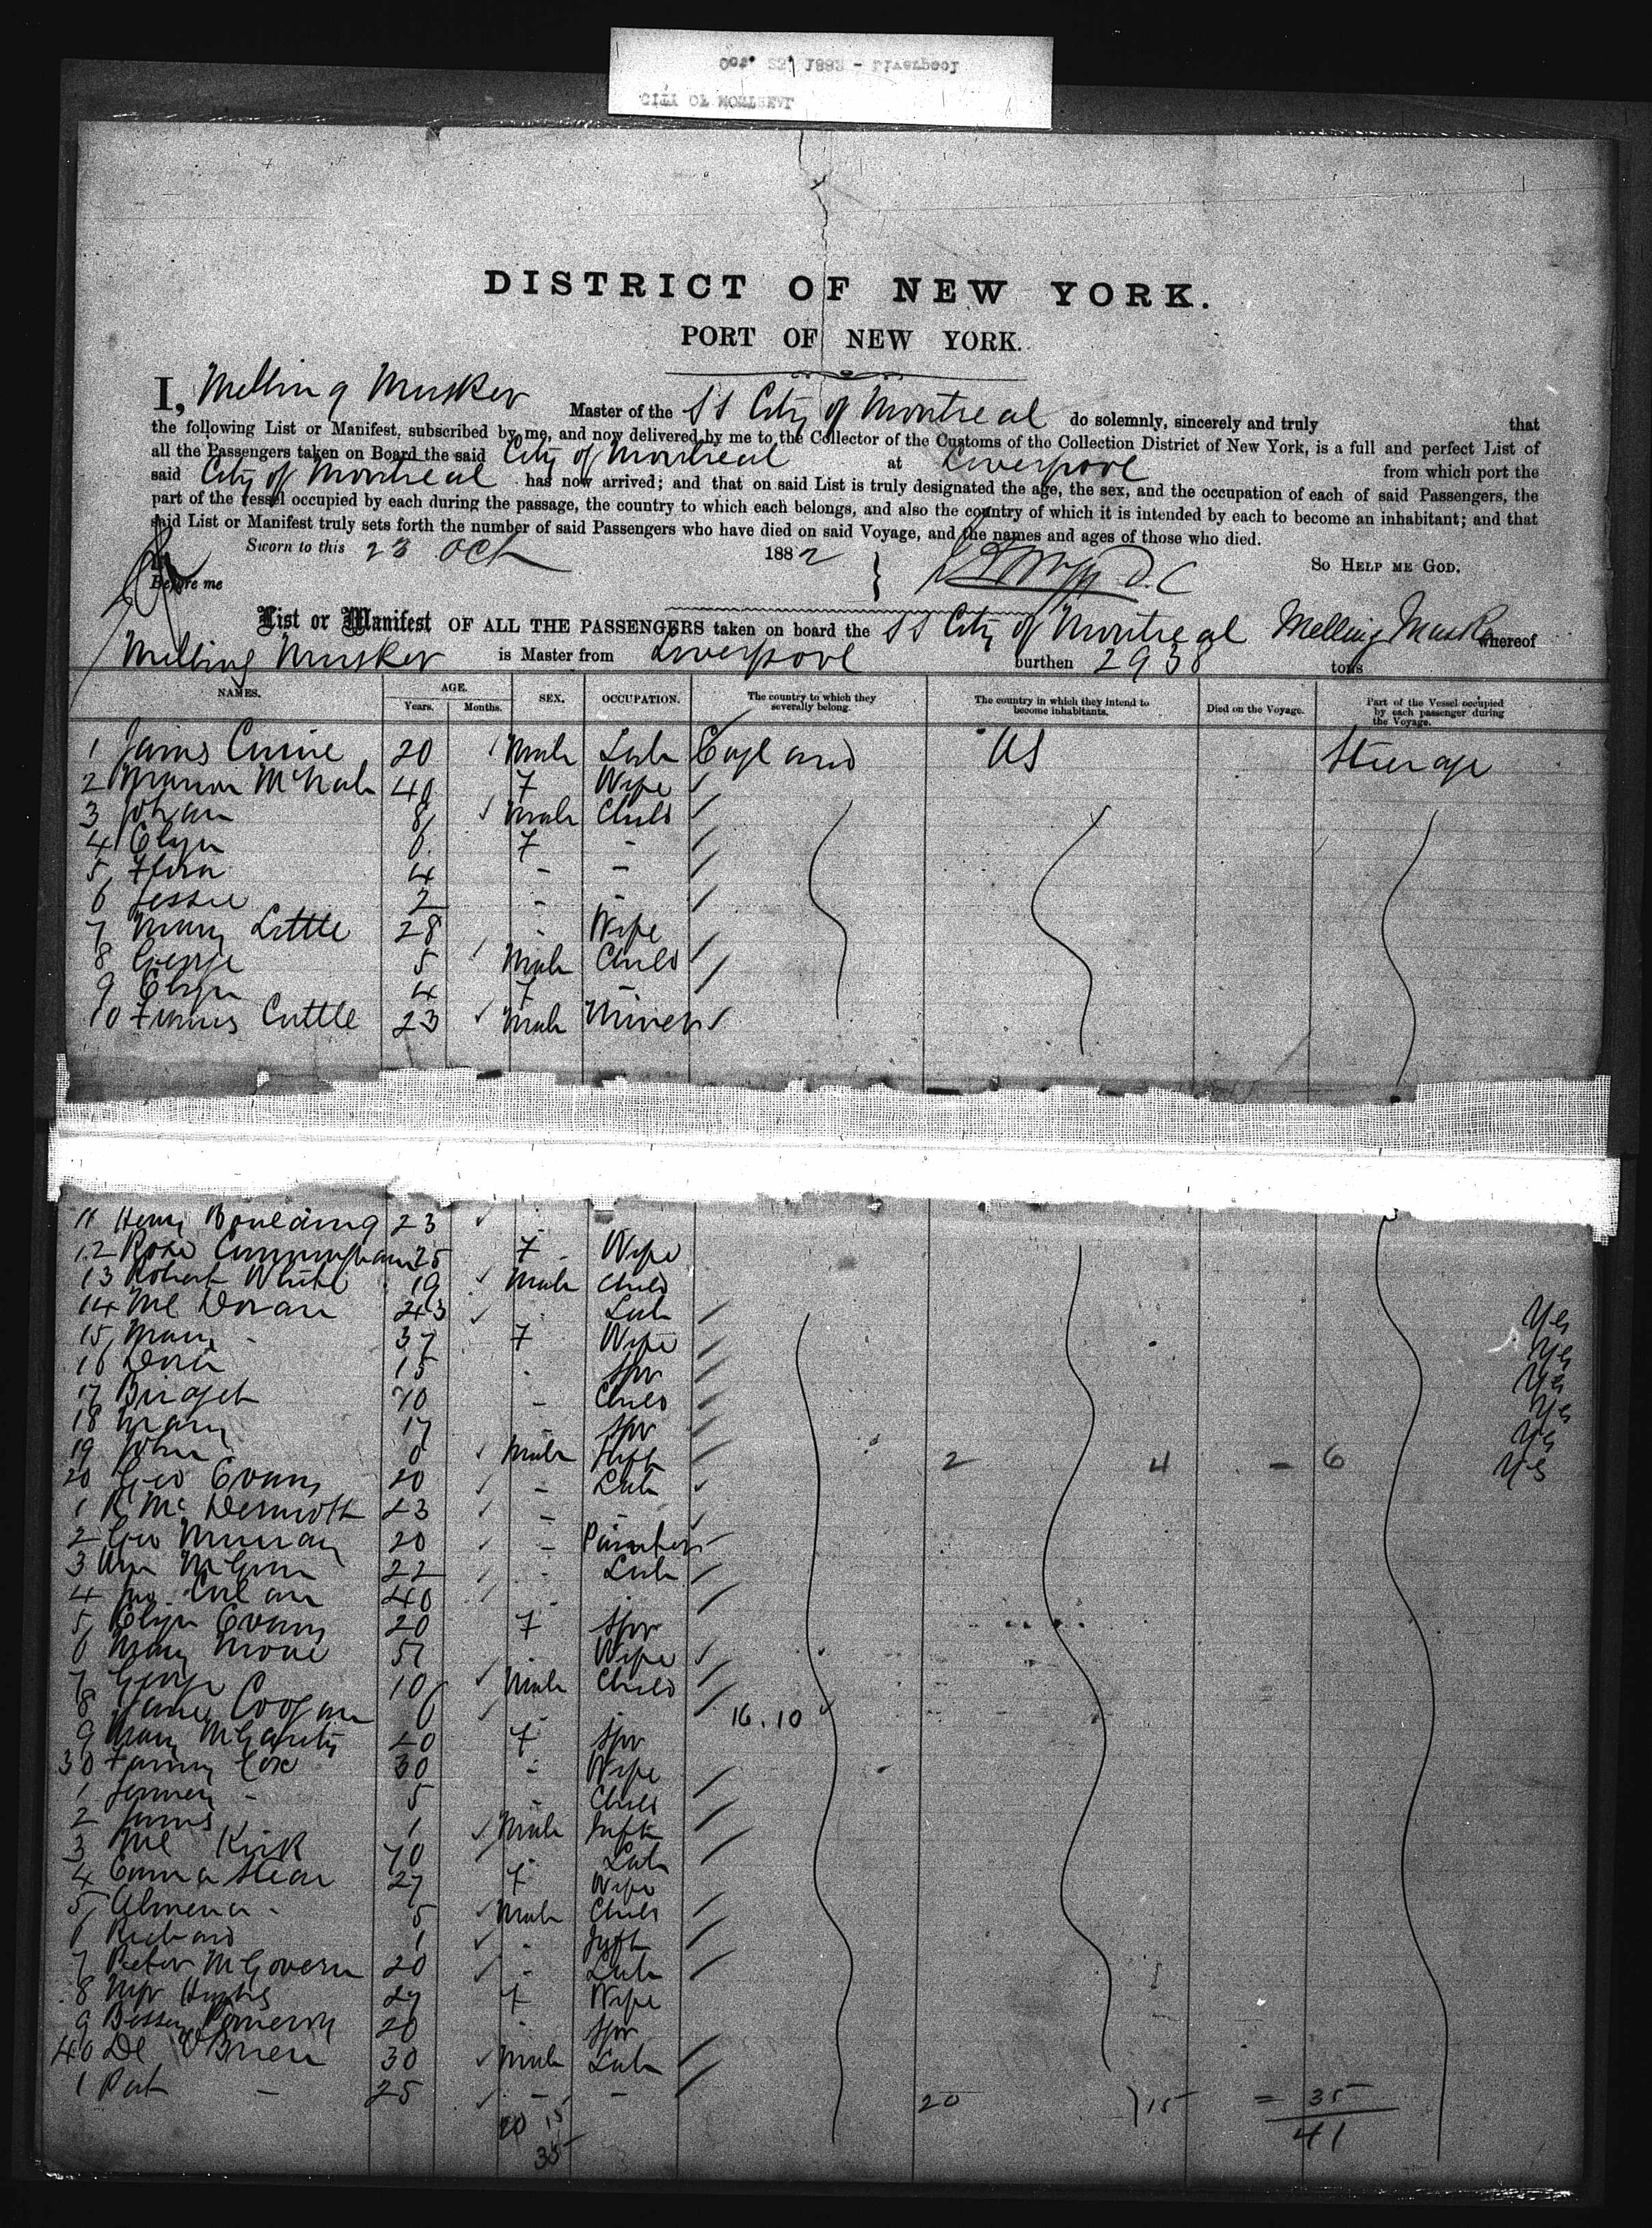 DISTRICT OF NEW YORK.
PORT OF NEW YORK.
I, Melling Musker Master of the SS City of Montreal do solemnly, sincerely and truly that
the following List or Manifest, subscribed by me, and now delivered by me to the Collector of the Customs of the Collection District of New York, is a full and perfect List of
all the Passengers taken on Board the said City of Montreal at Liverpool from which port the
said City of Montreal has now arrived; and that on said List is truly designated the age, the sex, and the occupation of each of said Passengers, the
part of the vessel occupied by each during the passage, the country to which each belongs, and also the country of which it is intended by each to become an inhabitant; and that
said List or Manifest truly sets forth the number of said Passengers who have died on said Voyage, and the names and ages of those who died.
Sworn to this 23 Oct 1882 So Help me God.
Before me
List or Manifest OF ALL THE PASSENGERS taken on board the SS City of Montreal Melling Musker whereof
Melling Musker is Master from Liverpool burthen 2938 tons
NAMES. AGE. Years. Months. SEX. OCCUPATION. The country to which they severally belong. The country in which they intend to become inhabitants. Died on the Voyage. Part of the Vessel occupied by each passenger during the Voyage.
1 James 20 Male Lab England US Steerage
2 McNab 40 F Wife
3 8 Male Child
4 Eliza F -
5 Flora 4 - -
6 Jessie 2 - -
7 Mary Little 28 - Wife
8 George 5 Male Child
9 Eliza 4 F -
10 Cuttle 23 Male Miner
11 Henry Boulding 23
12 Rose Cunningham 25 F Wife
13 Robert White 19 Male Child
14 Ml Doran 43 Lab Yes
15 Mary - 37 F Wife Yes
16 15 Spr Yes
17 Bridget 10 - Child Yes
18 Mary 17 - Spr Yes
19 John 0 Male Inft 2 4 - 6 Yes
20 Geo Evans 20 - Lab
1 McDermott 23 - -
2 Geo Murray 20 -
3 Wm McGinn 22 - Lab
4 40
5 Eliza Evans 20 F Spr
6 Mary 51 Wife
7 George 10 Male Child
8 Coogan 16.10
9 Mary McGarity 20 F Spr
30 Fanny Cox 30 - Wife
1 - 5 - Child
2 James 1 Male Inft
3 Ml Kirk 40 Lab
4 Emma 27 F Wife
5 Almena - 5 Male Child
6 Richard 1 - Inft
7 Peter McGovern 20 - Lab
8 Hughes 27 F Wife
9 Bessy 20 Spr
40 O'Brien 30 Male Lab
1 Pat - 25 - - 20 15 = 35
20 15 41
35